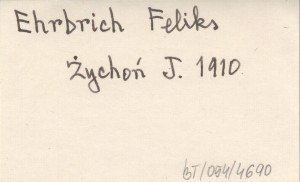 Ehrbrich Feliks
Żychoń J. 1910
BT/084/4690